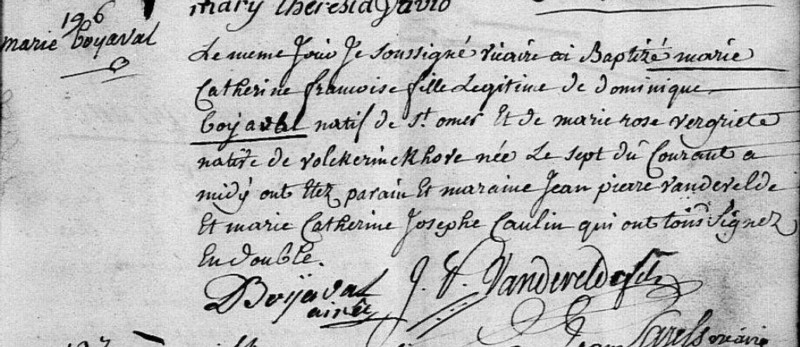 mary theresia
196
marie boyaval
Le meme Jour Je soussigné vicaire ai Baptizé marie
Catherine francoise fille Legitime de dominique
boyaval natif de st omer Et de marie rose vergriete
native de volckerinckhove née Le sept du Courant a
midÿ ont Etez parain Et maraine Jean pierre vandevelde
Et marie Catherine Josephe Caulin qui ont tous signez
En double.
DBoÿaval J. P. Vandevelde
ainé
vicaire